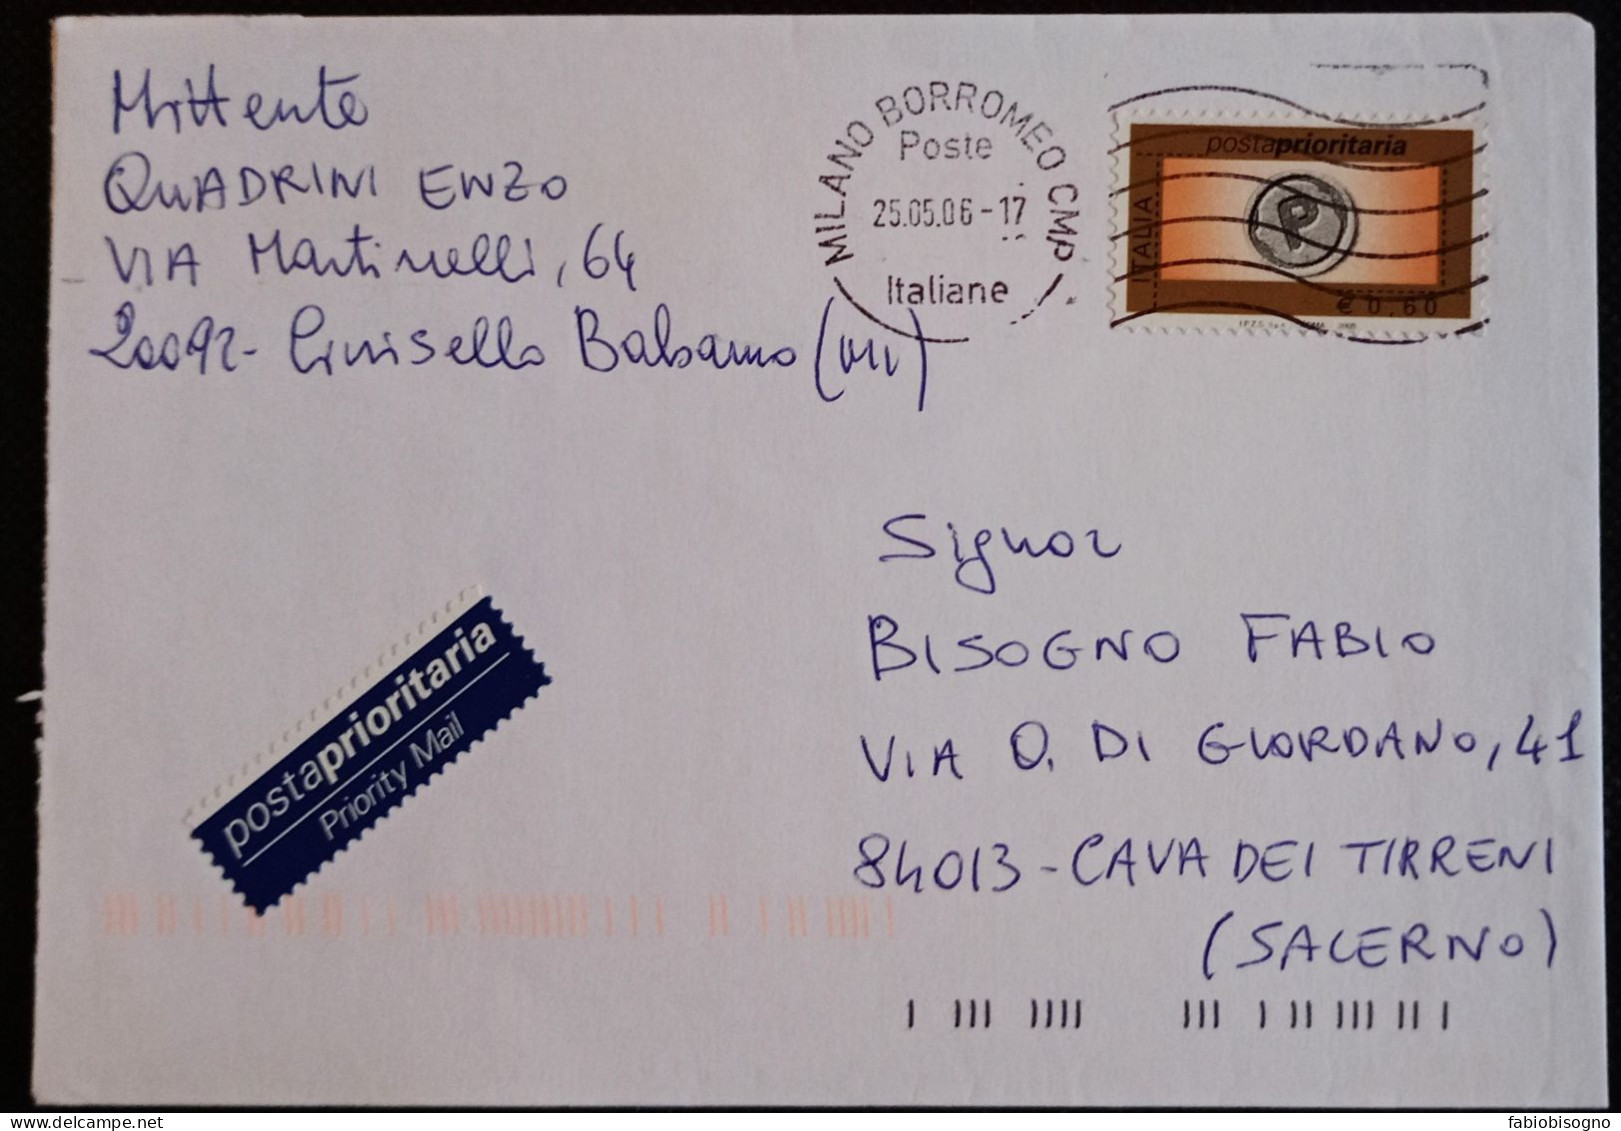 Mittente
QUADRINI ENZO
VIA Martinelli, 64
20092 - Cinisello Balsamo (MI)
MILANO BORROMEO CMP
Poste
25.05.06-17
Italiane
postaprioritaria
ITALIA
€ 0,60
I.P.Z.S. S.p.A. ROMA 2006
Signor
BISOGNO FABIO
VIA O. DI GIORDANO, 41
84013 - CAVA DEI TIRRENI
(SALERNO)
postaprioritaria
Priority Mail
fabiobisogno